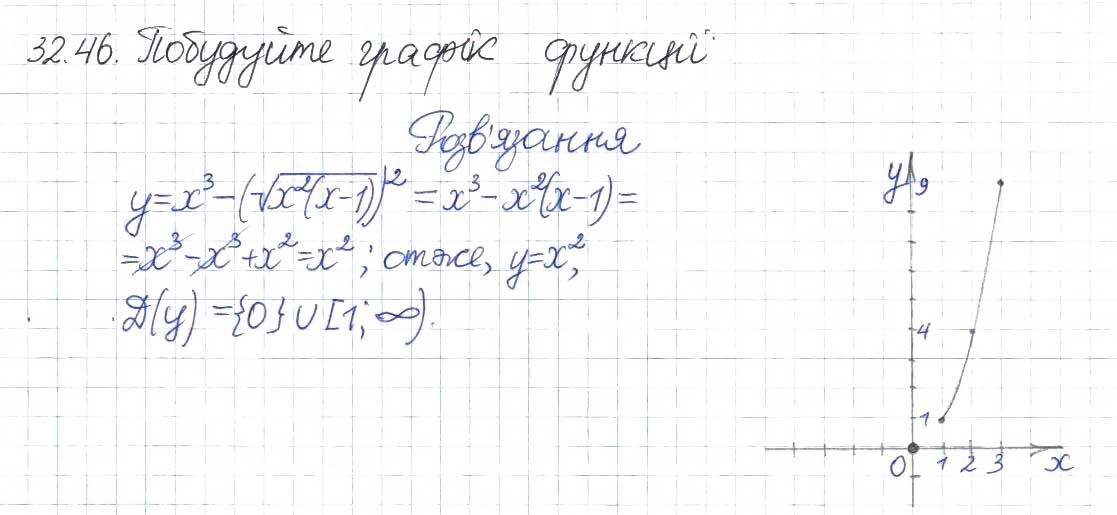 32.46. Побудуйте графік функції
Розв'язання
y=x³-(√x²(x-1))²=x³-x²(x-1)=
=x³-x³+x²=x²; отже, y=x²,
D(y)={0}∪[1;∞).
y
9
4
1
0 1 2 3 x